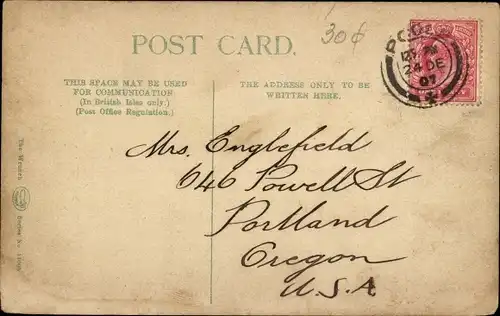 30¢
POST CARD.
THIS SPACE MAY BE USED
FOR COMMUNICATION
(In British Isles only.)
(Post Office Regulation.)
THE ADDRESS ONLY TO BE
WRITTEN HERE.
DE
Mrs. Englefield
646 Powell St
Portland
Oregon
U.S.A
The Wrench
Series No.